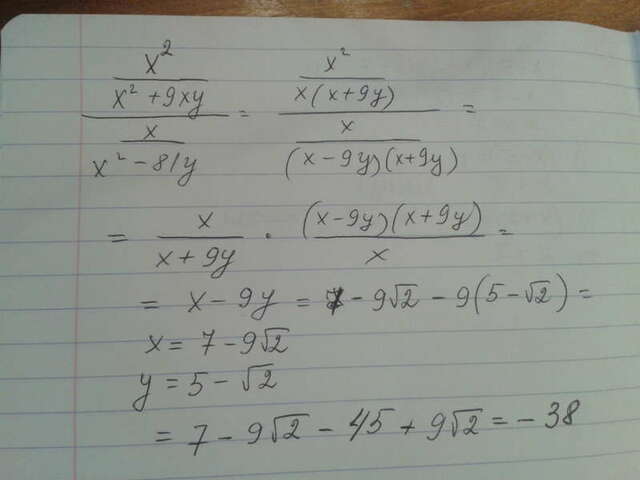 x²/(x² + 9xy) / x/(x² - 81y) = x²/(x(x+9y)) / x/((x-9y)(x+9y)) =
= x/(x + 9y) · (x-9y)(x+9y)/x =
= x - 9y = 7 - 9√2 - 9(5-√2) =
x = 7 - 9√2
y = 5 - √2
= 7 - 9√2 - 45 + 9√2 = - 38